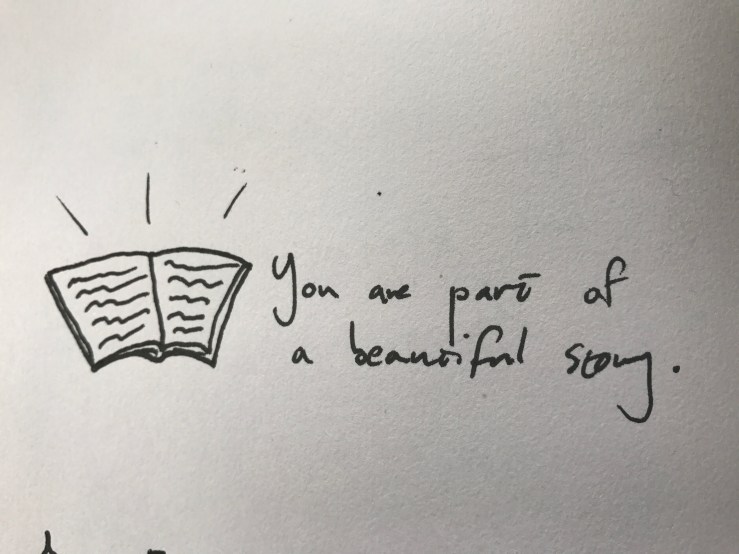 You are part of
a beautiful story.